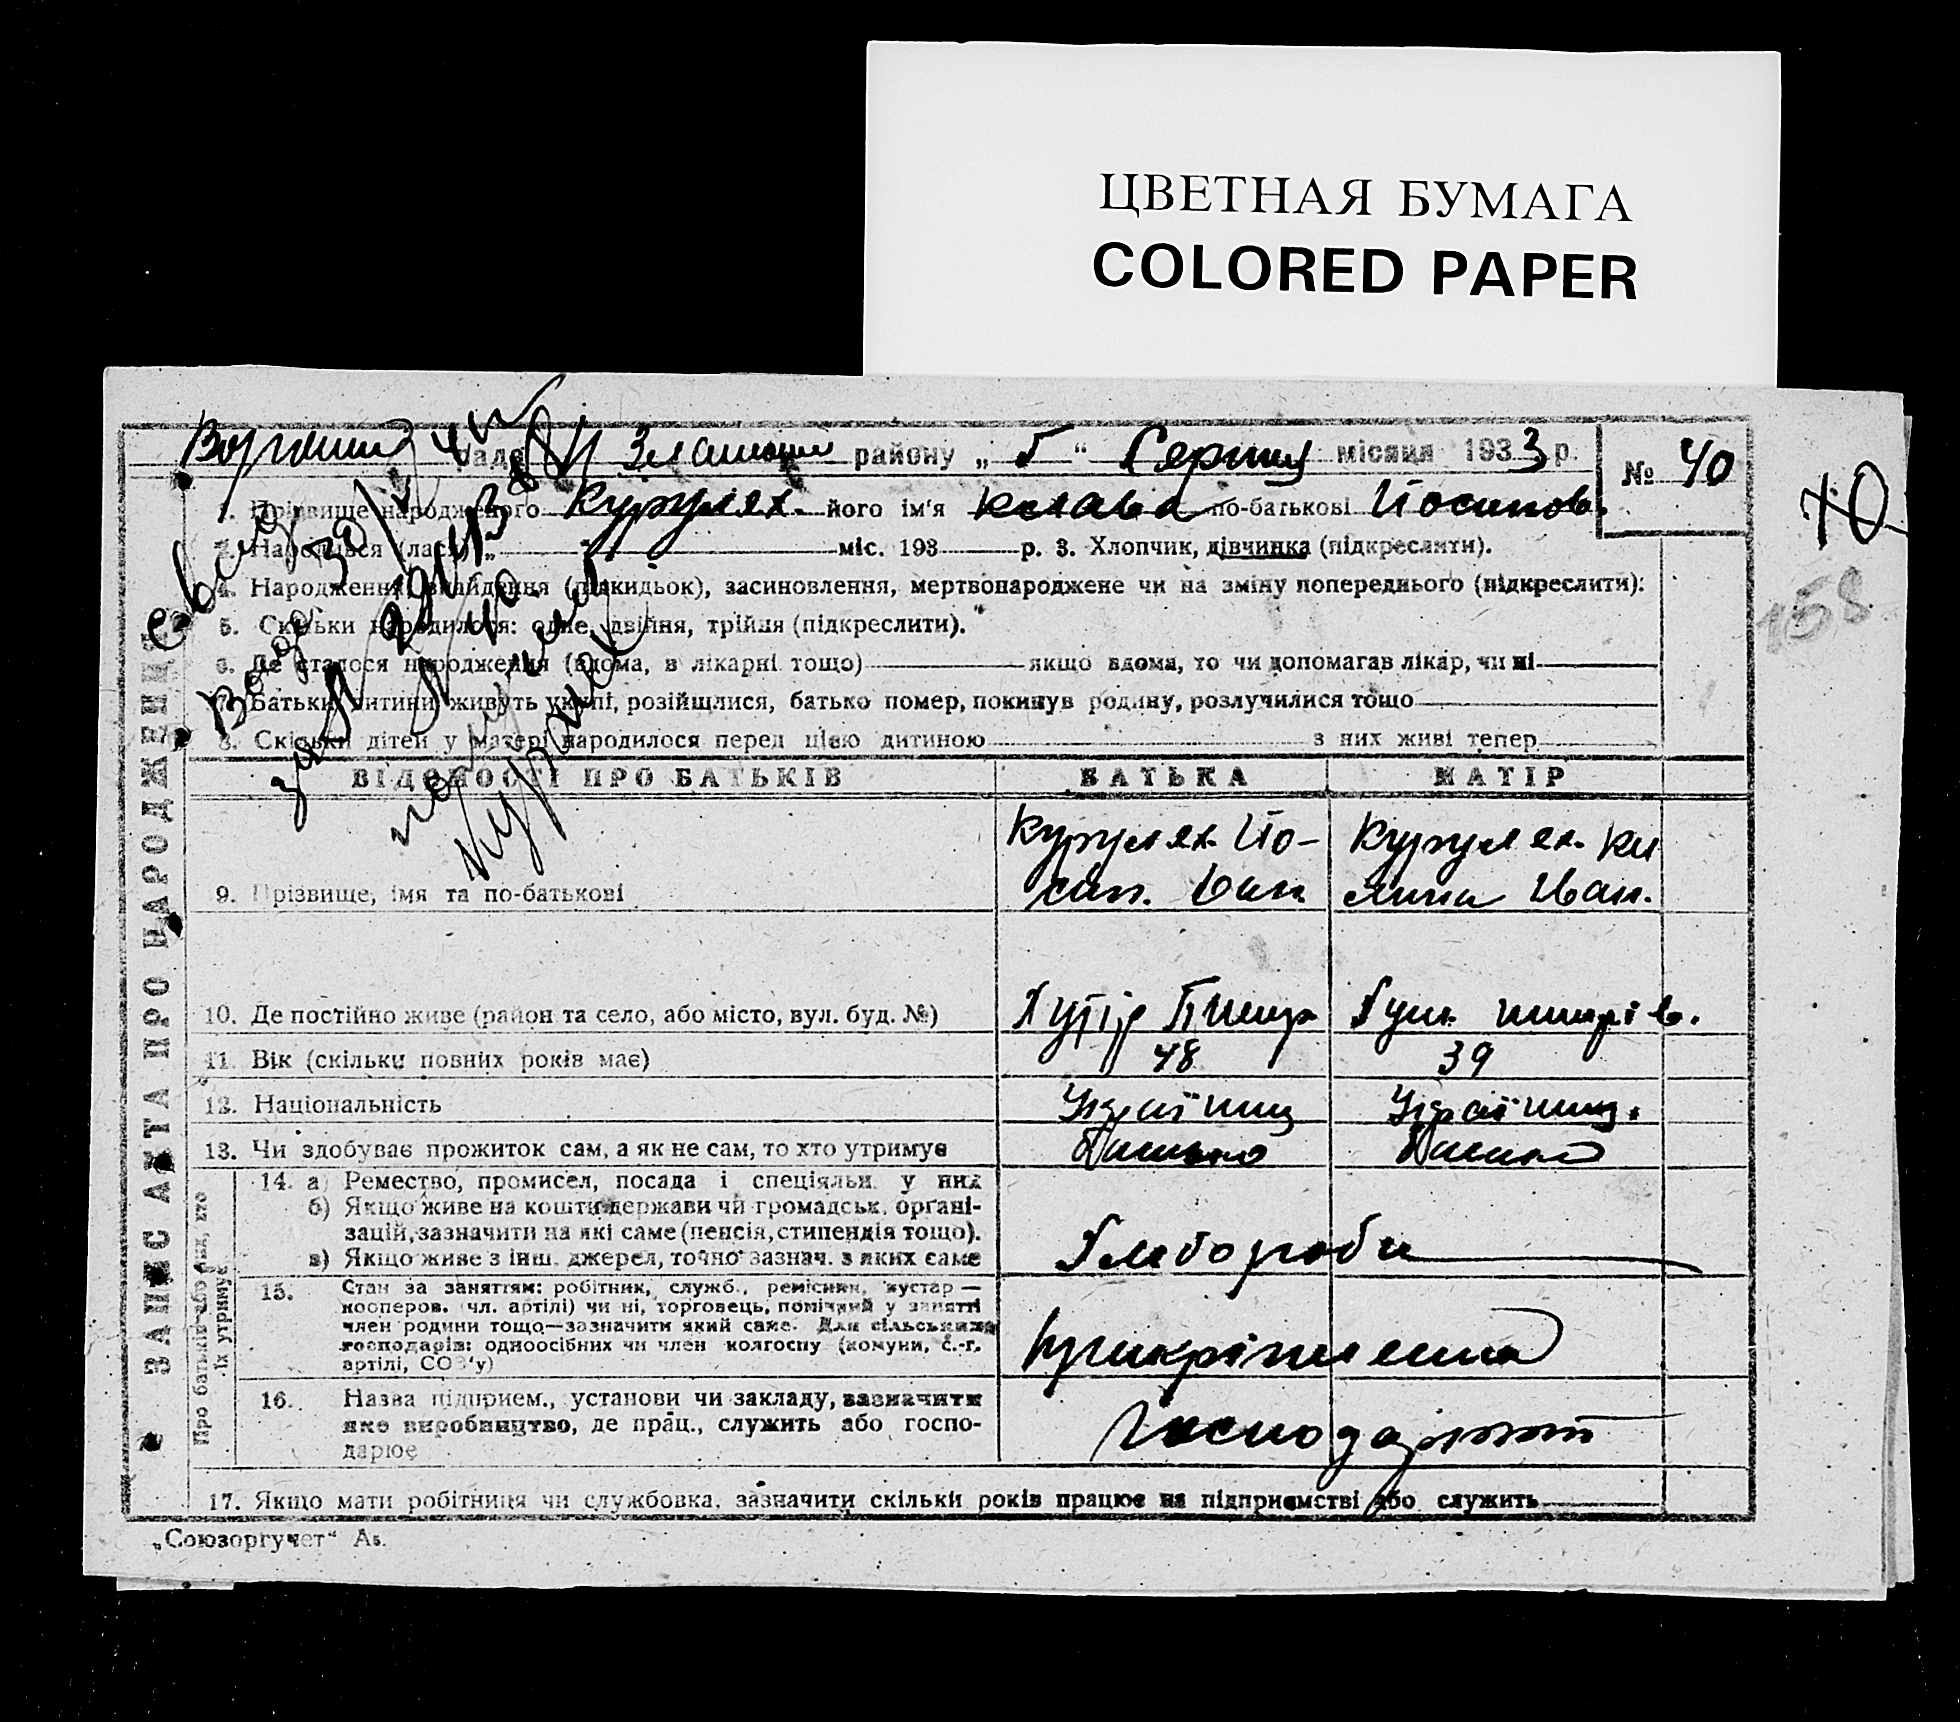 ЦВЕТНАЯ БУМАГА
COLORED PAPER
району „ 5 “ Серпня місяця 1933 р. № 40
40
158
1. Прізвище народженого Курулях. його ім'я Клава по-батькові Йосипов.
2. Народився (лася) „ міс. 193 р. 3. Хлопчик, дівчинка (підкреслити).
4. Народження, знайдення (підкидьок), засиновлення, мертвонароджене чи на зміну попереднього (підкреслити):
5. Скільки народилося: одне, двійня, трійня (підкреслити).
6. Де сталося народження (вдома, в лікарні тощо) якщо вдома, то чи допомагав лікар, чи ні
7. Батьки дитини живуть укупі, розійшлися, батько помер, покинув родину, розлучилися тощо
8. Скільки дітей у матері народилося перед цією дитиною з них живі тепер
ЗАПИС АКТА ПРО НАРОДЖЕННЯ
ВІДОМОСТІ ПРО БАТЬКІВ БАТЬКА МАТІР
Курулях Йо- Курулях. Ки
9. Прізвище, імя та по-батькові сип. Іван. лина Іван.
10. Де постійно живе (район та село, або місто, вул. буд. №) Хутір
11. Вік (скільки повних років має) 48 39
12. Національність Україниц Україниц.
13. Чи здобуває прожиток сам, а як не сам, то хто утримує
Про батьків або осіб, хто їх утримує
14. а) Ремество, промисел, посада і спеціяльн. у них
б) Якщо живе на кошти держави чи громадськ. органі-
зацій, зазначити на які саме (пенсія, стипендія тощо).
в) Якщо живе з інш. джерел, точно зазнач. з яких саме Хлібороби
15. Стан за заняттям: робітник, служб., ремісник, кустар —
кооперов. (чл. артілі) чи ні, торговець, помічний у занятті
член родини тощо—зазначити який саме. Для сільських
господарів: одноосібних чи член колгоспу (комуни, с.-г.
артілі, СОЗ'у)
16. Назва підприєм., установи чи закладу, зазначити
яке виробництво, де прац., служить або госпо-
дарює Господарюют
17. Якщо мати робітниця чи службовка, зазначити скільки років працює на підприємстві або служить
„Союзоргучет“